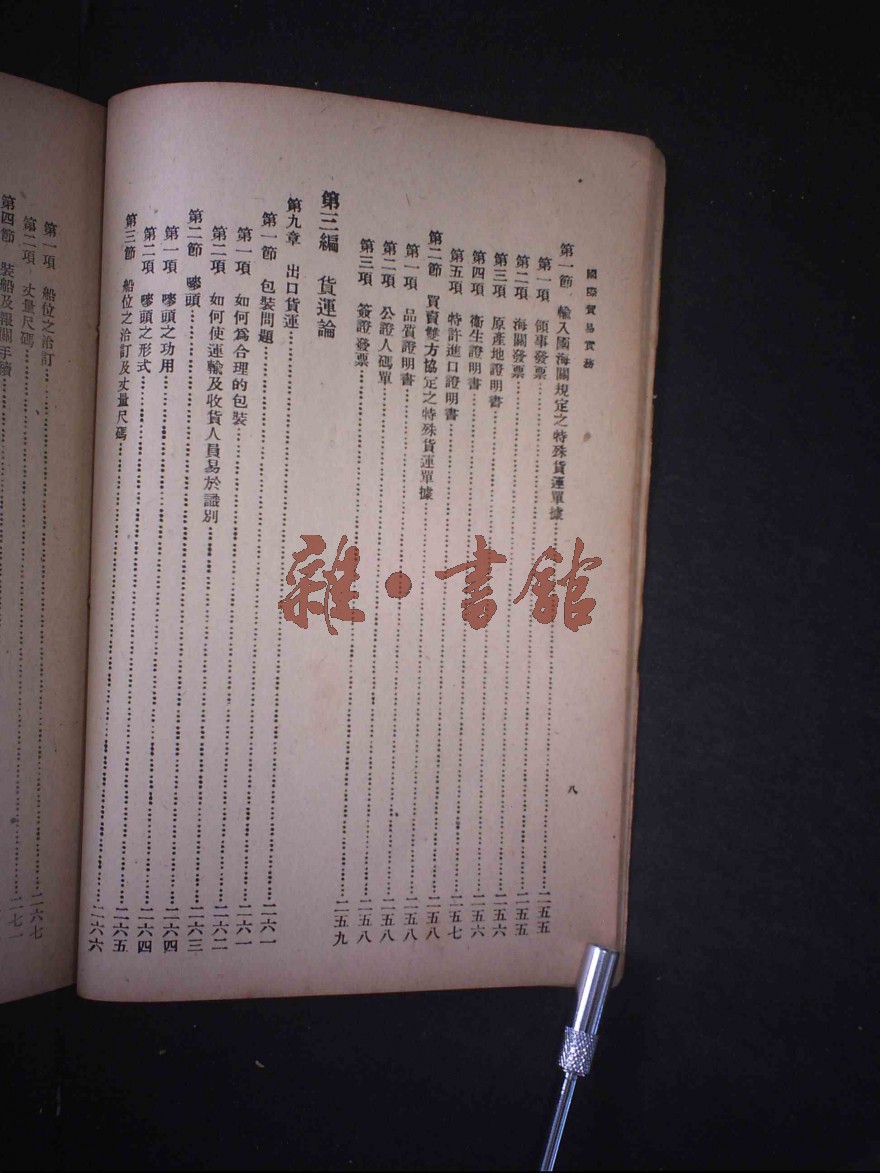 國際貿易實務
八
第一節 輸入國海關規定之特殊貨運單據……二五五
第一項 領事發票……二五五
第二項 海關發票……二五六
第三項 原產地證明書……二五六
第四項 衞生證明書……二五七
第五項 特許進口證明書……二五八
第二節 買賣雙方協定之特殊貨運單據……二五八
第一項 品質證明書……二五八
第二項 公證人碼單……二五八
第三項 簽證發票……二五九
第三編 貨運論
第九章 出口貨運……二六一
第一節 包裝問題……二六一
第一項 如何爲合理的包裝……二六二
第二項 如何使運輸及收貨人員易於識別……二六三
第二節 嘜頭……二六四
第一項 嘜頭之功用……二六四
第二項 嘜頭之形式……二六五
第三節 船位之洽訂及丈量尺碼……二六六
第一項 船位之洽訂……二六七
第二項 丈量尺碼……二七一
第四節 裝船及報關手續
雜·書館